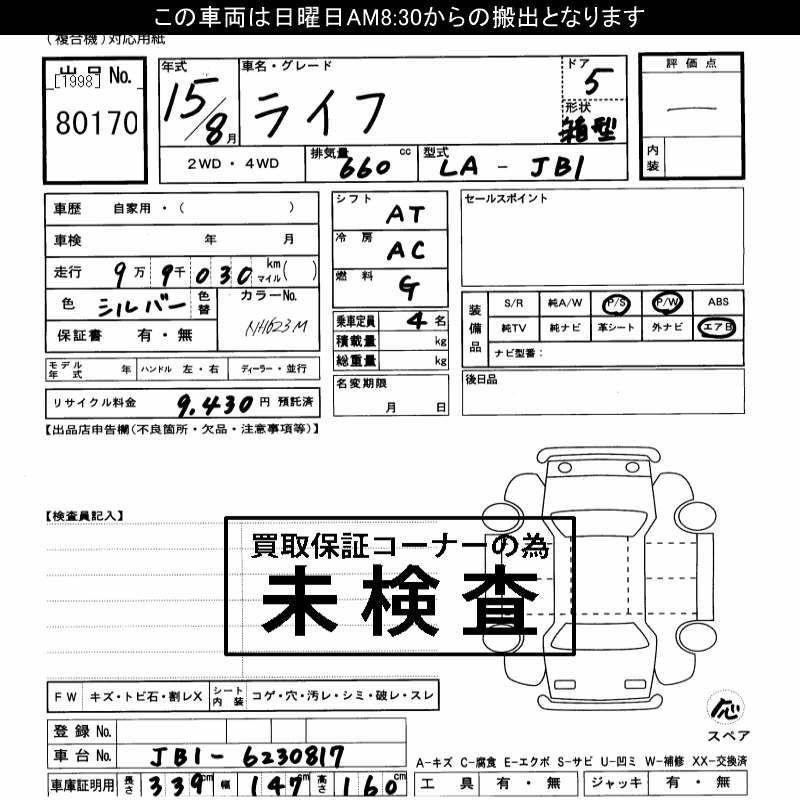 この車両は日曜日AM8:30からの搬出となります
(複合機)対応用紙
出品 No.
[1998]
80170
年式 車名・グレード ドア 5
15/8月 ライフ 形状 箱型
2WD・4WD 排気量 660 cc 型式 LA - JB1
評価点
一
内装
車歴 自家用・( )
車検 年 月
走行 9万9千030 km マイル( )
色 シルバー 色替 カラーNo. NH623M
保証書 有・無
モデル年式 年 ハンドル 左・右 ディーラー・並行
リサイクル料金 9,430円 預託済
シフト AT
冷房 AC
燃料 G
乗車定員 4名
積載量 kg
総重量 kg
名変期限
月 日
セールスポイント
装備品 S/R 純A/W P/S P/W ABS
純TV 純ナビ 革シート 外ナビ エアB
ナビ型番:
後日品
【出品店申告欄(不良箇所・欠品・注意事項等)】
【検査員記入】
買取保証コーナーの為
未検査
FW キズ・トビ石・割レX シート内装 コゲ・穴・汚レ・シミ・破レ・スレ
登録No.
車台No. JB1-6230817
車庫証明用 長さ 339cm 幅 147cm 高さ 160cm
応
スペア
A-キズ C-腐食 E-エクボ S-サビ U-凹ミ W-補修 XX-交換済
工具 有・無 ジャッキ 有・無